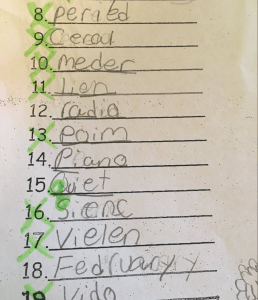 8. periƚd
9. Cereal
10. meder
11. lien
12. radio
13. poim
14. Piano
15. Quiet
16. Sienc
17. Vielen
18. Fedruary
19. Vido